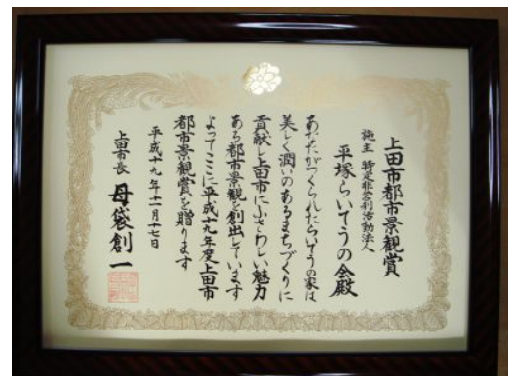 上田市都市景観賞
施主 特定非営利活動法人
平塚らいてうの会殿
あなたがつくられたらいてうの家は
美しく潤いのあるまちづくりに
貢献し上田市にふさわしい魅力
ある都市景観を創出しています
よってここに平成十九年度上田市
都市景観賞を贈ります
平成十九年十一月十七日
上田市長 母袋創一